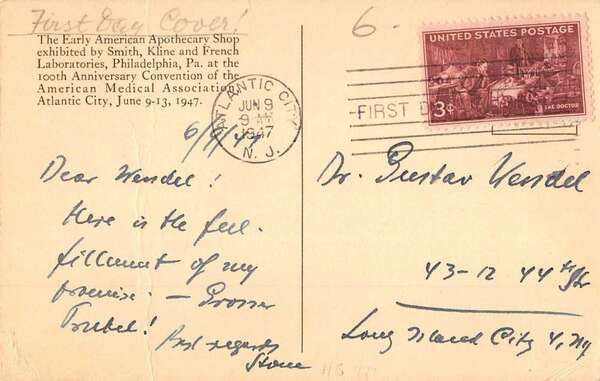 First Day Cover!
The Early American Apothecary Shop
exhibited by Smith, Kline and French
Laboratories, Philadelphia, Pa. at the
100th Anniversary Convention of the
American Medical Association,
Atlantic City, June 9-13, 1947.
6/9/47
Dear Wendel!
Here is the ful-
fillment of my
promise. — Grosser
Trubel!
Best regards
6-
ATLANTIC CITY
JUN 9
9 AM
1947
N. J.
FIRST D
UNITED STATES POSTAGE
3¢
THE DOCTOR
Dr. Gustav Wendel
43-12 44th Str
Long Island City 4, NY